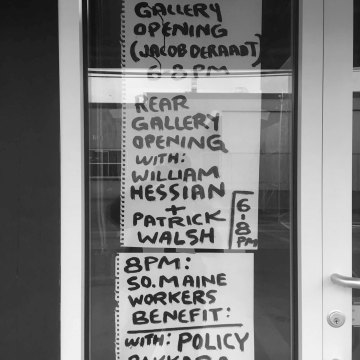 GALLERY
OPENING
(JACOB DERAADT)
6-8PM
REAR
GALLERY
OPENING
WITH:
WILLIAM
HESSIAN
+
PATRICK
WALSH
6-8PM
8PM:
SO. MAINE
WORKERS
BENEFIT:
WITH: POLICY